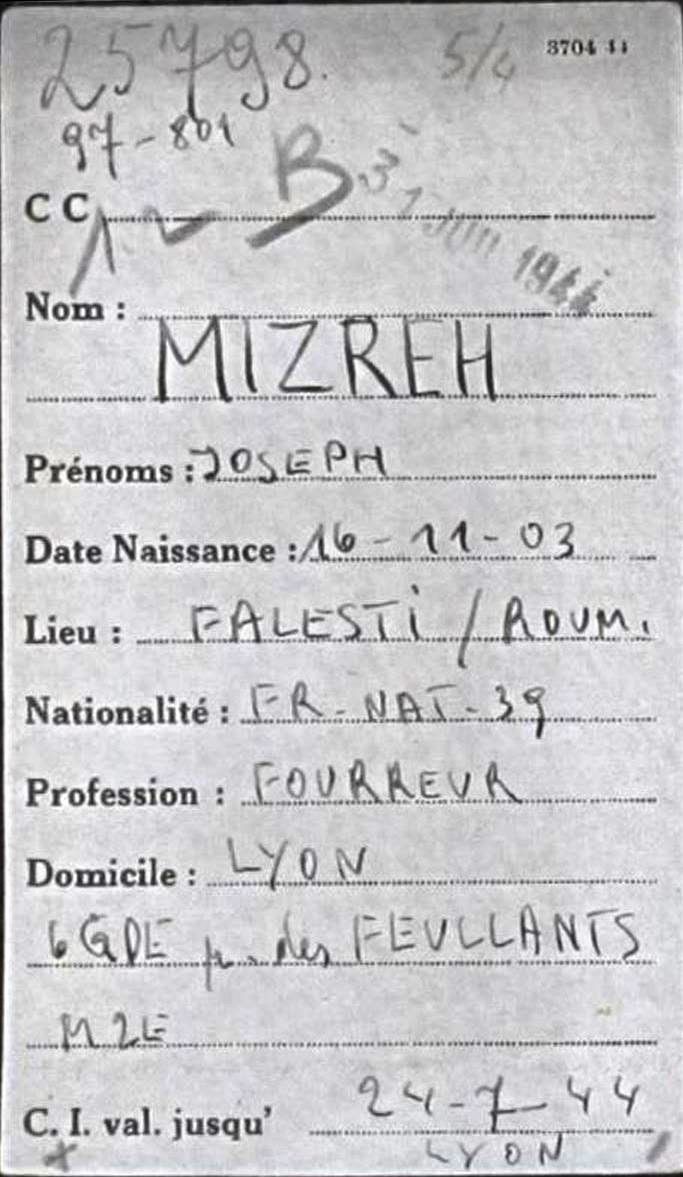 25798. 5/4 3704 44
97-801
CC B. 31 JUIL 1944
Nom :
MIZREH
Prénoms : JOSEPH
Date Naissance : 16-11-03
Lieu : FALESTI / ROUM.
Nationalité : FR-NAT-39
Profession : FOURREUR
Domicile : LYON
6 GDE r. des FEULLANTS
C. I. val. jusqu' 24-7-44
LYON